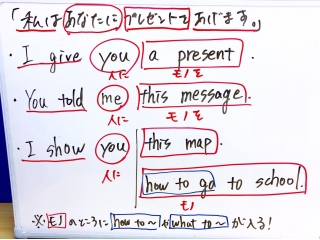 「私はあなたにプレゼントをあげます。」
・I give you a present.
人に モノを
・You told me this message.
人に モノを
・I show you this map.
人に
how to go to school.
モノ
※モノのところにhow to～やwhat to～が入る!